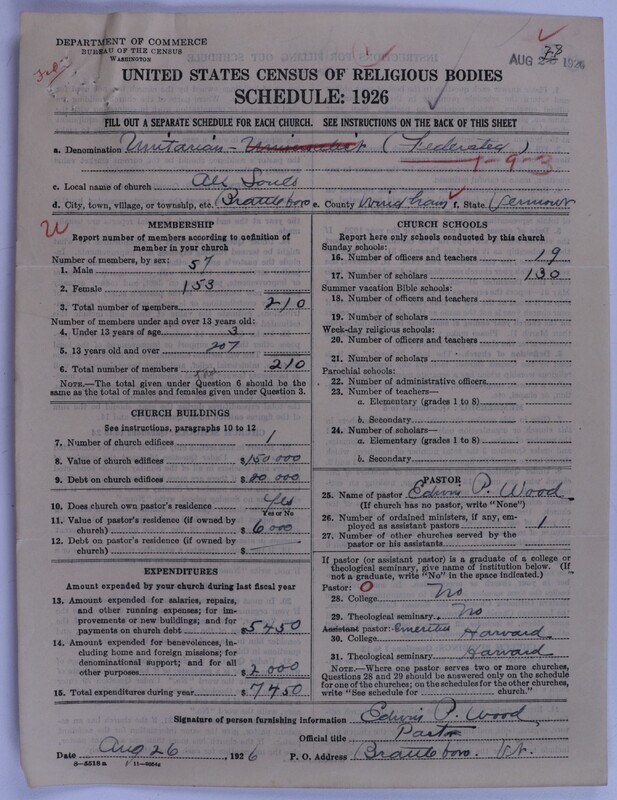 DEPARTMENT OF COMMERCE
BUREAU OF THE CENSUS
WASHINGTON
AUG 28 1926
UNITED STATES CENSUS OF RELIGIOUS BODIES
SCHEDULE: 1926
FILL OUT A SEPARATE SCHEDULE FOR EACH CHURCH. SEE INSTRUCTIONS ON THE BACK OF THIS SHEET
a. Denomination Unitarian - Universalist (Federated)
1-9-3
c. Local name of church All Souls
d. City, town, village, or township, etc. Brattleboro e. County Windham f. State Vermont
U
MEMBERSHIP
Report number of members according to definition of
member in your church
Number of members, by sex:
1. Male 57
2. Female 153
3. Total number of members 210
Number of members under and over 13 years old:
4. Under 13 years of age 3
5. 13 years old and over 207
6. Total number of members 210
NOTE.—The total given under Question 6 should be
same as the total of males and females given under Question 3.
CHURCH BUILDINGS
See instructions, paragraphs 10 to 12
7. Number of church edifices 1
8. Value of church edifices $150 000
9. Debt on church edifices
10. Does church own pastor's residence Yes
Yes or No
11. Value of pastor's residence (if owned by
church) $6 000
12. Debt on pastor's residence (if owned by
church) $
EXPENDITURES
Amount expended by your church during last fiscal year
13. Amount expended for salaries, repairs,
and other running expenses; for im-
provements or new buildings; and for
payments on church debt $5450
14. Amount expended for benevolences, in-
cluding home and foreign missions; for
denominational support; and for all
other purposes $2 000
15. Total expenditures during year $7450
CHURCH SCHOOLS
Report here only schools conducted by this church
Sunday schools:
16. Number of officers and teachers 19
17. Number of scholars 130
Summer vacation Bible schools:
18. Number of officers and teachers
19. Number of scholars
Week-day religious schools:
20. Number of officers and teachers
21. Number of scholars
Parochial schools:
22. Number of administrative officers
23. Number of teachers—
a. Elementary (grades 1 to 8)
b. Secondary
24. Number of scholars—
a. Elementary (grades 1 to 8)
b. Secondary
PASTOR
25. Name of pastor Edwin P. Wood
(If church has no pastor, write "None")
26. Number of ordained ministers, if any, em-
ployed as assistant pastors 1
27. Number of other churches served by the
pastor or his assistants
If pastor (or assistant pastor) is a graduate of a college or
theological seminary, give name of institution below. (If
not a graduate, write "No" in the space indicated.)
Pastor: O
28. College No
29. Theological seminary No
Assistant pastor: Emeritus
30. College Harvard
31. Theological seminary Harvard
NOTE.—Where one pastor serves two or more churches,
Questions 28 and 29 should be answered only on the schedule
for one of the churches; on the schedules for the other churches,
write "See schedule for church."
Signature of person furnishing information Edwin P. Wood
Official title Pastor
Date Aug 26, 1926 P. O. Address Brattleboro. Vt.